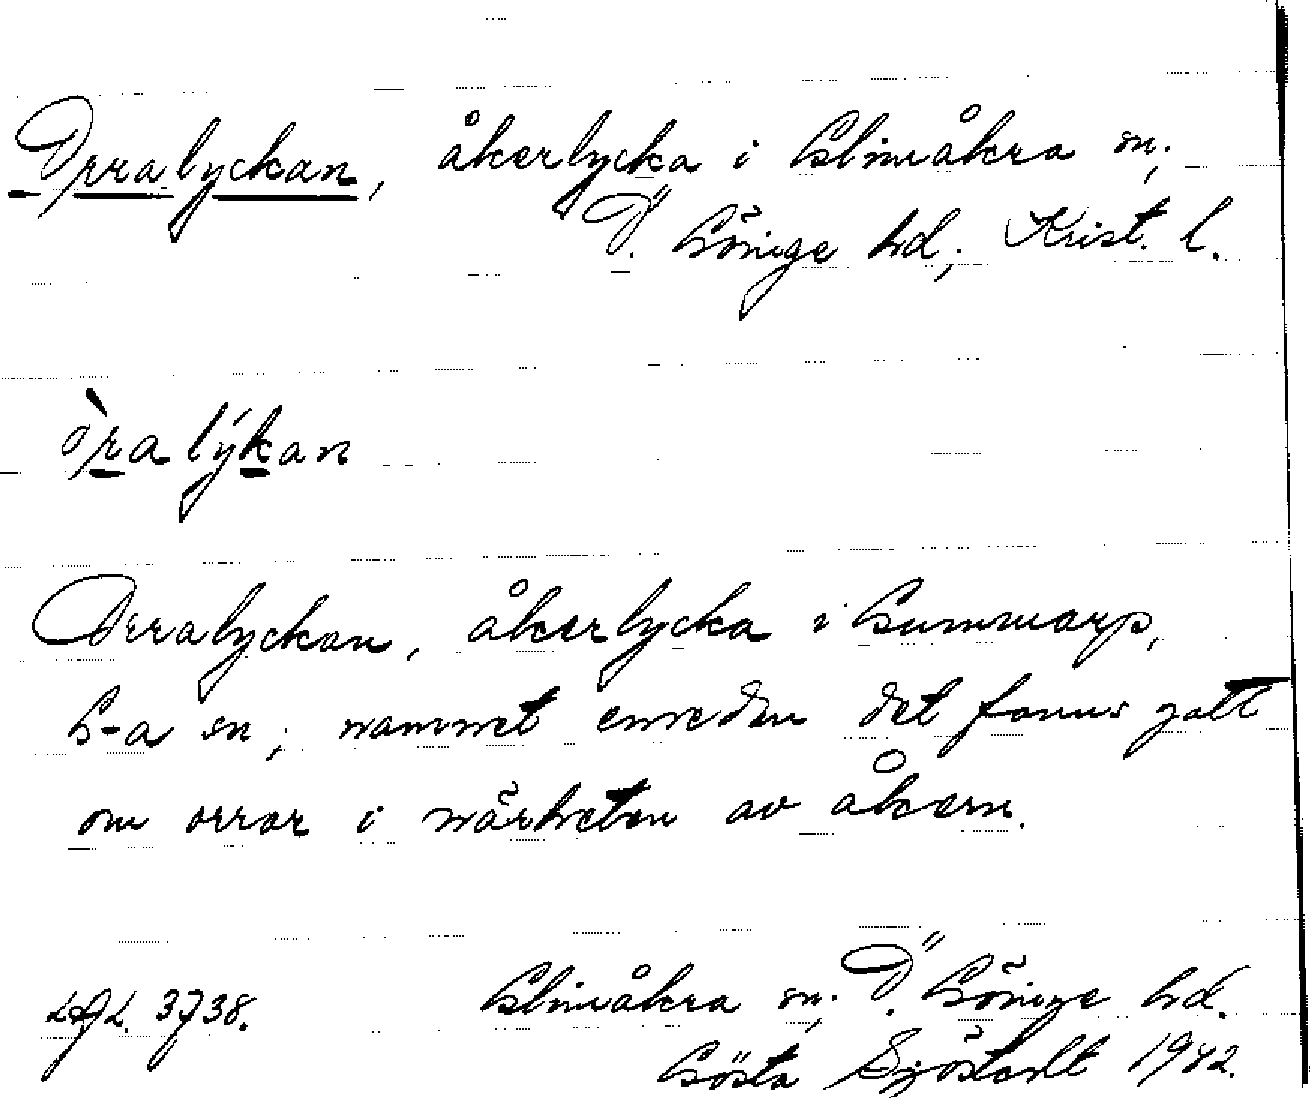 Orralyckan, åkerlycka i Glimåkra sn;
Ö. Göinge hd; Krist. l.
òralýkan
Orralyckan, åkerlycka i Gummarp,
G-a sn; namnet emedan det fanns gott
om orrar i närheten av åkern.
LAL. 3738. Glimåkra sn; Ö. Göinge hd.
Gösta Sjöstedt 1942.